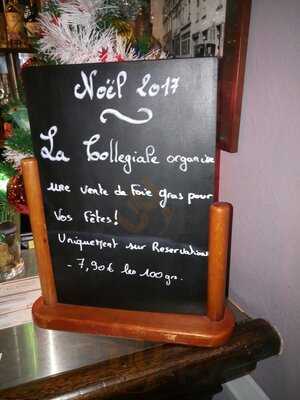 Noël 2017
La Collegiale organise
une vente de Foie gras pour
Vos Fêtes!
Uniquement sur Reservations
- 7,90€ les 100grs.